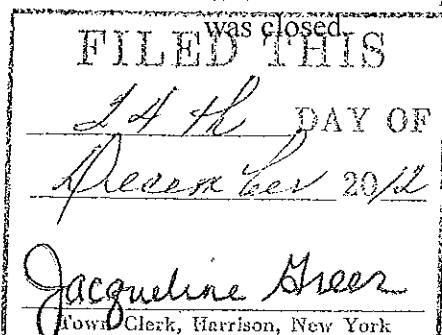 was closed.
FILED THIS
24th DAY OF
December 2012
Jacqueline Greer
Town Clerk, Harrison, New York